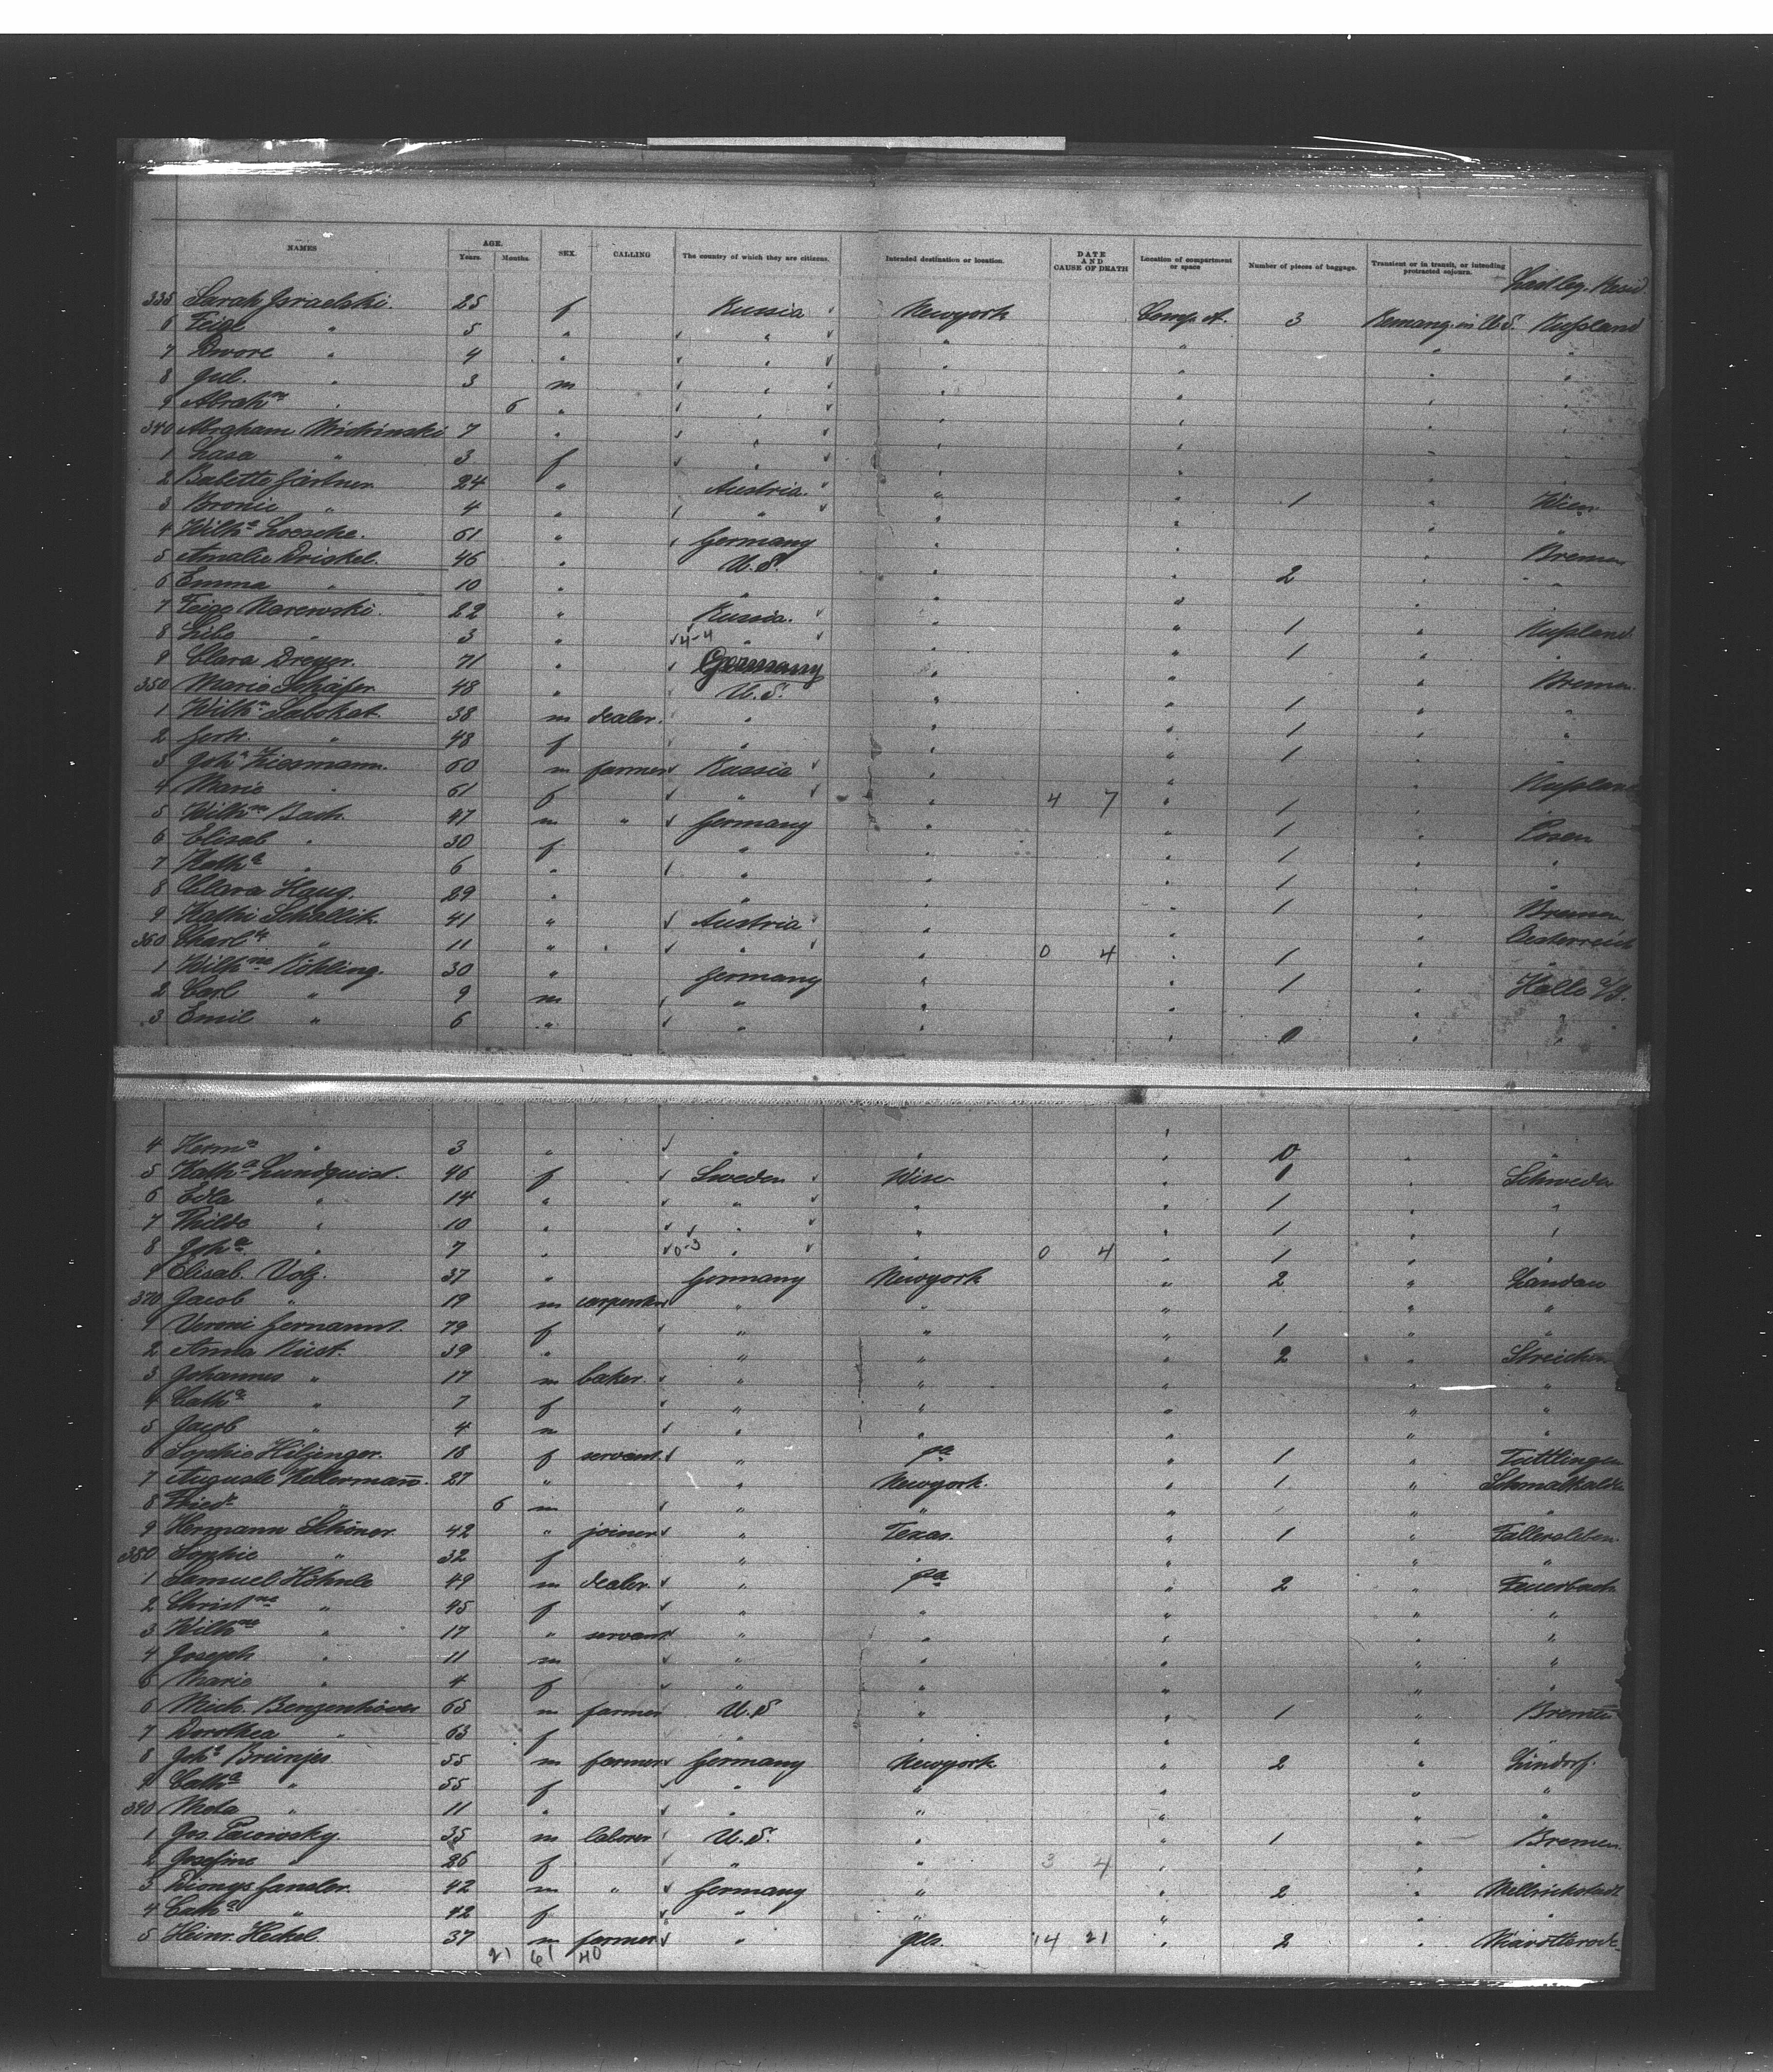 NAMES AGE. Years. Months. SEX. CALLING The country of which they are citizens. Intended destination or location. DATE AND CAUSE OF DEATH Location of compartment or space Number of pieces of baggage. Transient or in transit, or intending protracted sojourn. Last leg. Resid.
335 Sarah Israelski. 25 f Russia Newyork Comp. A. 3 Remang. in U.S. Russland
6 Feige " 5 " " " " " "
7 Dwore " 4 " " " " " "
8 3 m " " " " "
9 Abrahm " 6 " " " " " "
340 Abraham 7 " " " " " "
1 Lasa " 3 f " " " " "
2 Babette Gärtner 24 " Austria " " 1 " Wien
3 Bronie " 4 " " " " " "
4 Wilha Loesche. 61 " Germany " " " Bremen
5 Amalie Driskel. 46 " U.S. " " 2 " "
6 Emma " 10 " " " " " "
7 Feige Narewski. 22 " Russia. " " 1 " Russland
8 Libe " 3 " 4-4 " " " 1 " "
9 Clara Dreyer. 71 " Germany " " " Bremen
350 Marie Schäfer 48 " U.S. " " 1 " "
1 Wilhm 38 m dealer. " " " 1 " "
2 Gertr. " 48 f " " " 1 " "
3 Joh. Ziesmann. 60 m farmer Russia " " " Russland
4 Marie " 61 f " " 4 7 " 1 "
5 Wilhm Bach 47 m " Germany " " 1 " Posen
6 Elisab " 30 f " " " 1 " "
7 Katha " 6 " " " " 1 " "
8 Clara Haug. 29 " " " " 1 " Bremen
9 Kathi Schallik 41 " Austria " " " Oesterreich
360 " 11 " " " 0 4 " 1 " "
1 Wilhme Röhling. 30 " Germany " " 1 " Halle a/S.
2 Carl " 9 m " " " " "
3 Emil " 6 " " " " 0 " "
4 Herm " 3 " " " " 0 " "
5 Katha Lundquist. 46 f Sweden Wisc " 1 " Schweden
6 Eda " 14 " " " " 1 " "
7 Thilde " 10 " " " " 1 " "
8 Joha " 7 " 0-3 " " 0 4 " 1 " "
9 Elisab. Volz. 37 " Germany Newyork " 2 " Landau
370 Jacob " 19 m carpenter " " " " "
1 79 f " " " 1 " "
2 Anna Rust. 39 " " " " 2 "
3 Johannes " 17 m baker. " " " " "
4 Catha " 7 f " " " " "
5 Jacob " 4 m " " " " "
6 Sophie Hilzinger. 18 f servant " pa " 1 " Tuttlingen
7 Auguste Kellermañ. 27 " " Newyork. " 1 " Schmalkalden
8 Friedr " 6 m " " " " "
9 Hermann Schöner 42 " joiner " Texas. " 1 " Fallersleben
380 Sophie " 32 f " " " " "
1 Samuel Höhnle 49 m dealer. " pa " 2 " Feuerbach
2 Christne " 45 f " " " " "
3 Wilhme " 17 " servant " " " " "
4 Joseph " 11 m " " " " "
5 Marie " 4 f " " " " "
6 Mich. Benzenhöver 65 m farmer U.S " " 1 " Bremen
7 Dorothea " 63 f " " " " "
8 Joh. Brünjes 55 m farmer Germany Newyork " 2 "
9 Catha " 55 f " " " " "
390 Meta " 11 " " " " " "
1 Jos. 35 m laborer U.S. " " 1 " Bremen.
2 Josefine " 26 f " " 3 4 " " "
3 Dionys Gansler. 42 m " Germany " " 2 " Mellrichstadt
4 Catha " 42 f " " " " "
5 Heinr. Heckel. 37 m farmer " Ills. 14 21 " 2 "
21 61 40